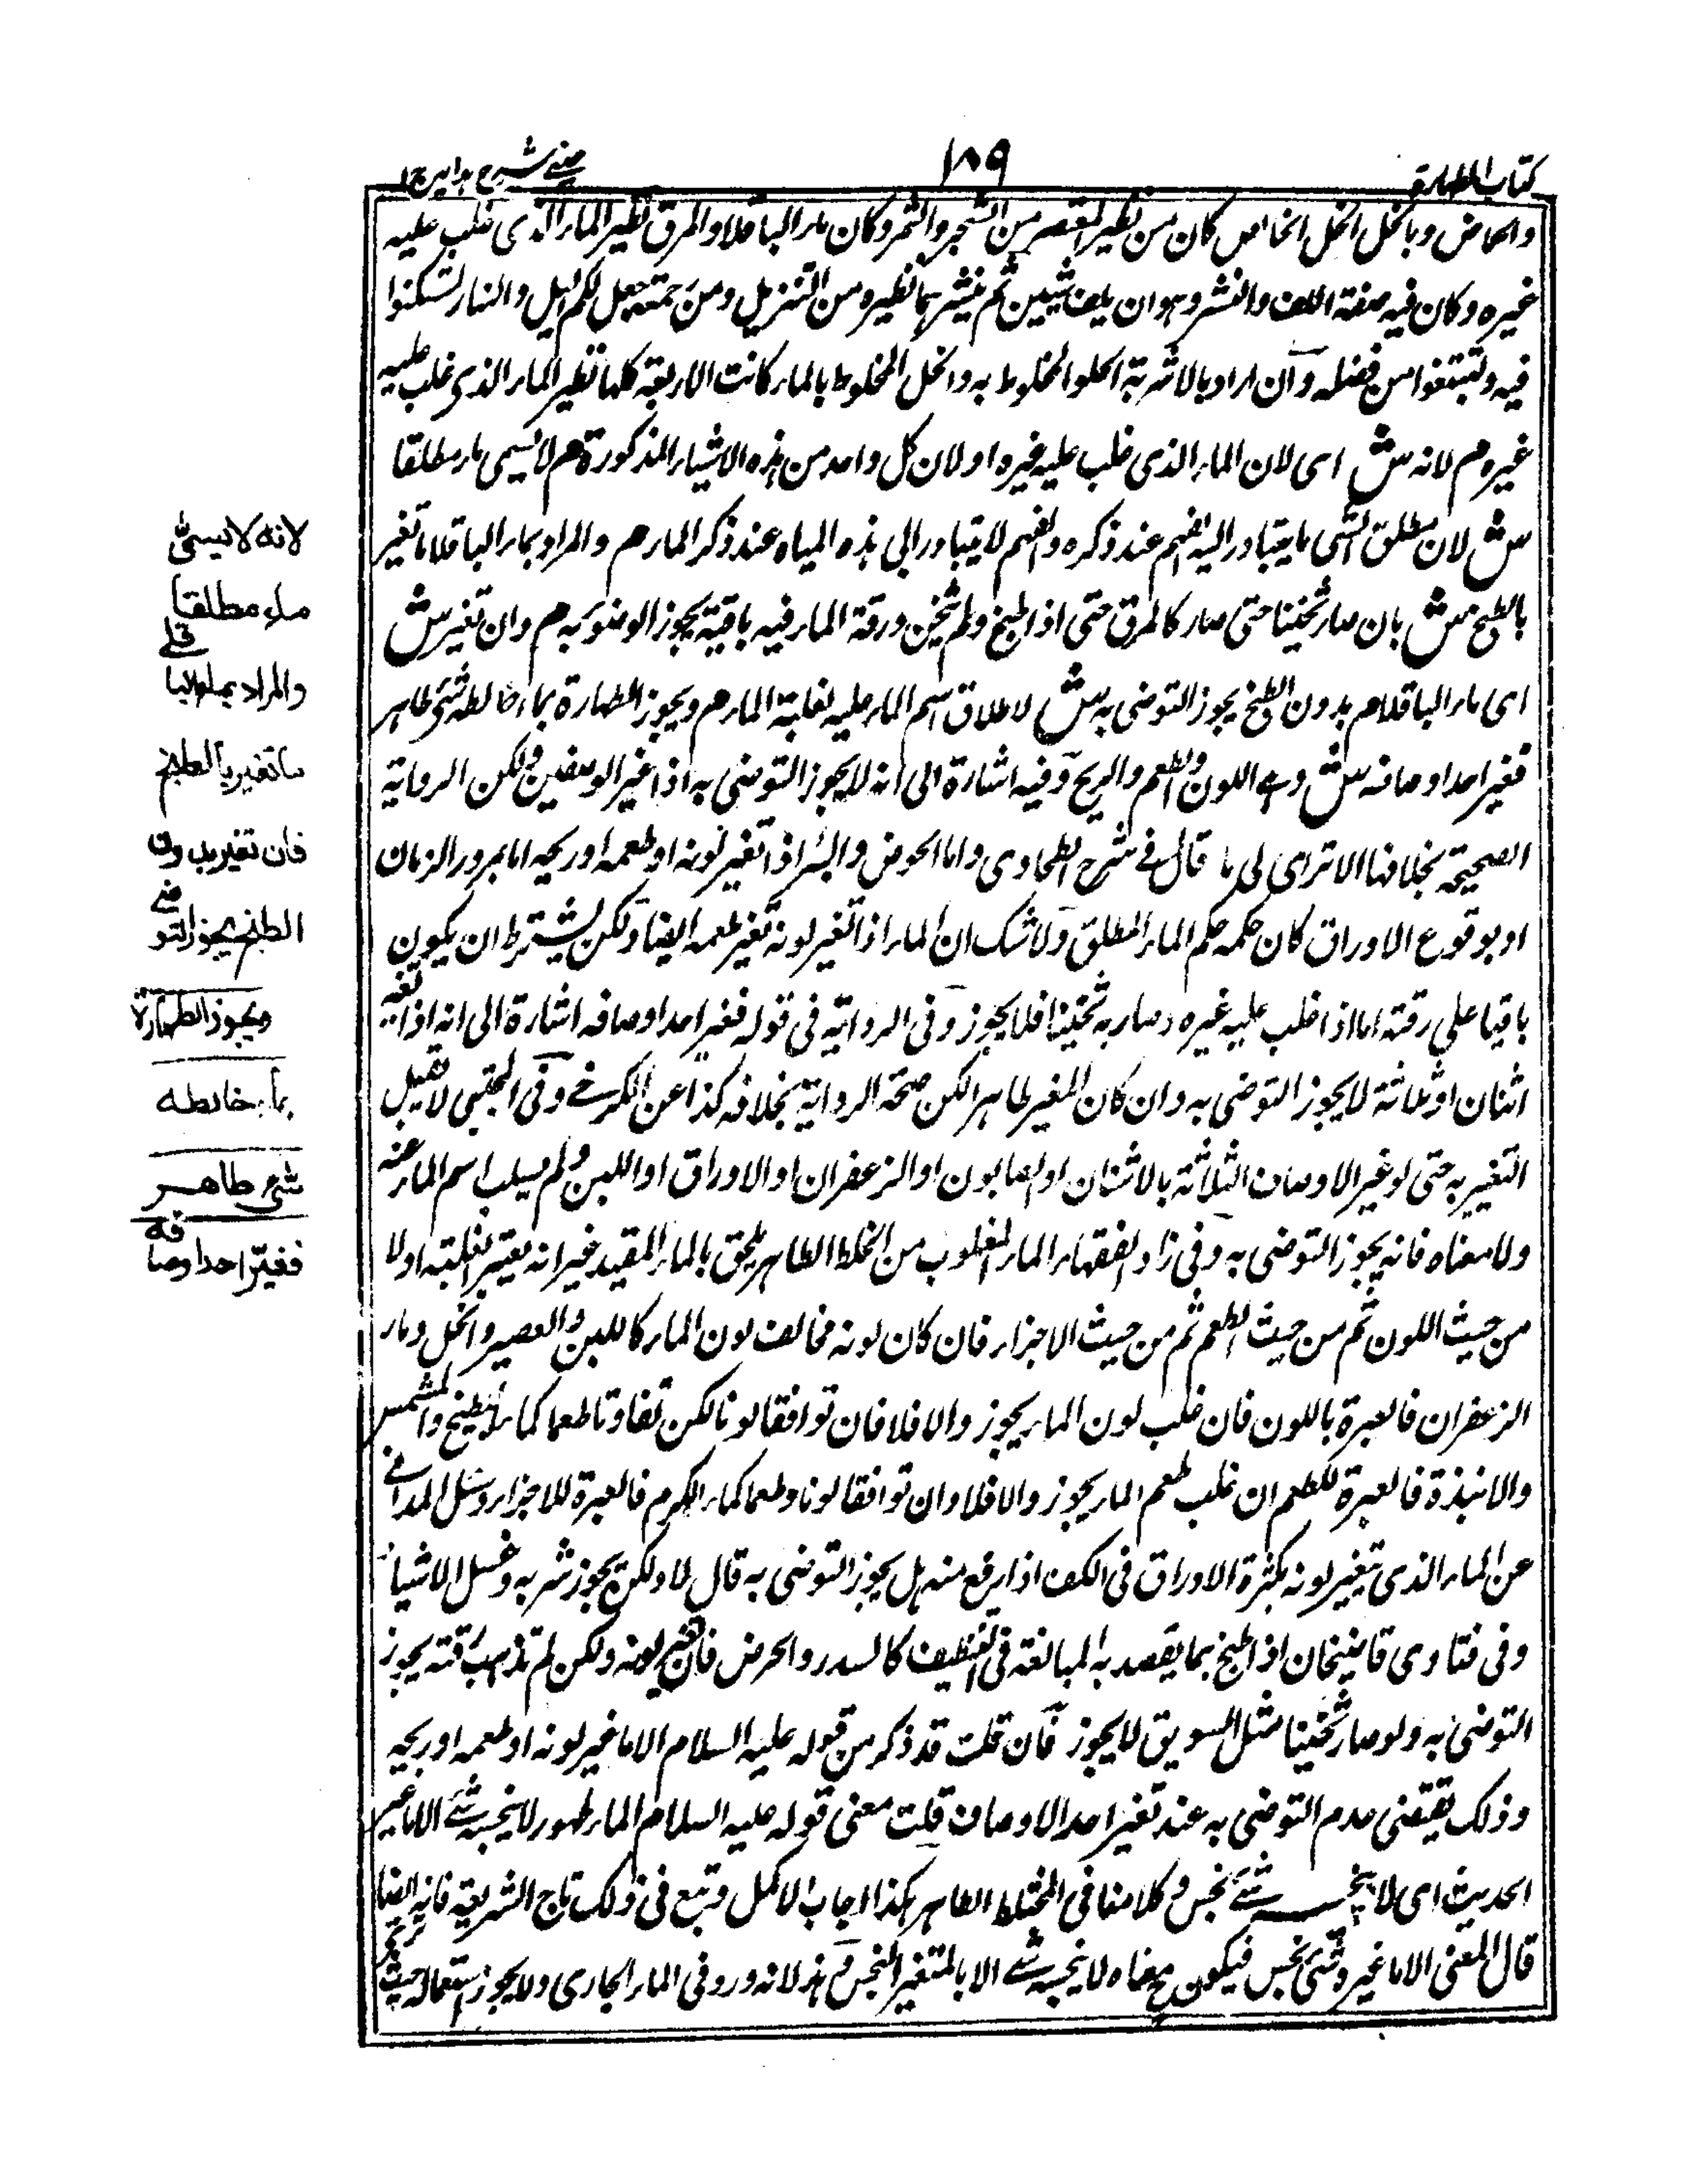 كتاب الطهارة
١٨٩
عيني شرح هدايه ج ١
والحماض وبالخل الخل الخالص كان من نظير المعتصر من الشجر والثمر وكان ماء الباقلا والمرق نظير الماء الذى غلب عليه
غيره وكان فيه صفة اللف والنشر وهو ان يلف شيئين ثم ينشر بهما نظيره من التنزيل ومن رحمته جعل لكم الليل والنهار لتسكنوا
فيه ولتبتغوا من فضله وان اراد بالاشربة الحلو المخلوط به والخل المخلوط بالماء كانت الاربعة كلها نظير الماء الذى غلب عليه
غيره م لانه ش اى لان الماء الذى غلب عليه غيره او لان كل واحد من هذه الاشياء المذكورة م لا يسمى ماء مطلقا
ش لان مطلق الشى ما يتبادر اليه الفهم عند ذكره والفهم لا يتبادر الى هذه المياه عند ذكر الماء م والمراد بماء الباقلا ما تغير
بالطبخ ش بان صار ثخينا حتى صار كالمرق حتى اذا طبخ ولم يثخن ورقة الماء فيه باقية يجوز الوضوء به م وان تغير ش
اى ماء الباقلا م بدون الطبخ يجوز التوضى به ش لاطلاق اسم الماء عليه لغلبة الماء م ويجوز الطهارة بماء خالطه شئ طاهر
فغير احد اوصافه ش وهى اللون والطعم والريح وفيه اشارة الى انه لا يجوز التوضى به اذا غير الوصفين ولكن الرواية
الصحيحة بخلافها الا ترى الى ما قال فى شرح الطحاوى واما الحوض والبئر اذا تغير لونه او طعمه او ريحه اما بمرور الزمان
او بوقوع الاوراق كان حكمه حكم الماء المطلق ولا شك ان الماء اذا تغير لونه تغير طعمه ايضا ولكن يشترط ان يكون
باقيا على رقته اما اذا غلب عليه غيره وصار به ثخينا فلا يجوز وفى الرواية فى قوله فغير احد اوصافه اشارة الى انه اذا تغير
اثنان او ثلاثة لا يجوز التوضى به وان كان المغير طاهرا لكن صحة الرواية بخلافه كذا عن الكرخى وفى المجتبى لا يقبل
التغير به حتى لو غير الاوصاف الثلاثة بالاشنان او الصابون او الزعفران او الاوراق او اللبن ولم يسلب اسم الماء عنه
ولا معناه فانه يجوز التوضى به وفى زاد الفقهاء الماء المغلوب من الخلط الطاهر يلحق بالماء المقيد غير انه يعتبر الغلبة اولا
من حيث اللون ثم من حيث الطعم ثم من حيث الاجزاء فان كان لونه مخالف لون الماء كاللبن والعصير والخل وماء
الزعفران فالعبرة باللون فان غلب لون الماء يجوز والا فلا فان توافقا لونا لكن تفاوتا طعما كماء البطيخ والمشمش
والانبذة فالعبرة للطعم ان غلب طعم الماء يجوز والا فلا وان توافقا لونا وطعما كماء الكرم فالعبرة للاجزاء وسئل الميدانى
عن الماء الذى يتغير لونه بكثرة الاوراق فى الكف اذا رفع منه هل يجوز التوضى به قال لا ولكن يجوز شربه وغسل الاشياء
وفى فتاوى قاضيخان اذا طبخ بما يقصد به المبالغة فى التنظيف كالسدر والحرض فان تغير لونه ولكن لم تذهب رقته يجوز
التوضى به ولو صار ثخينا مثل السويق لا يجوز فان قلت قد ذكر من قوله عليه السلام الا ما غير لونه او طعمه او ريحه
وذلك يقتضى عدم التوضى به عند تغير احد الاوصاف قلت معنى قوله عليه السلام الماء طهور لا ينجسه شئ الا ما غير
الحديث اى لا ينجسه شئ نجس وكلامنا فى المختلط الطاهر هكذا اجاب الاكمل وتبع فى ذلك تاج الشريعة فانه ايضا
قال المعنى الا ما غيره شئ نجس فيكون ح معناه لا ينجسه شئ الا بالمتغير النجس وهذا لانه ورد فى الماء الجارى ولا يجوز استعماله حيث
لانه لا يسمى
ماء مطلقا
والمراد بماء الباقلى
ما تغير بالطبخ
فان تغير بدون
الطبخ يجوز التوضى
ويجوز الطهارة
بماء خالطه
شئ طاهر
فغير احد اوصافه